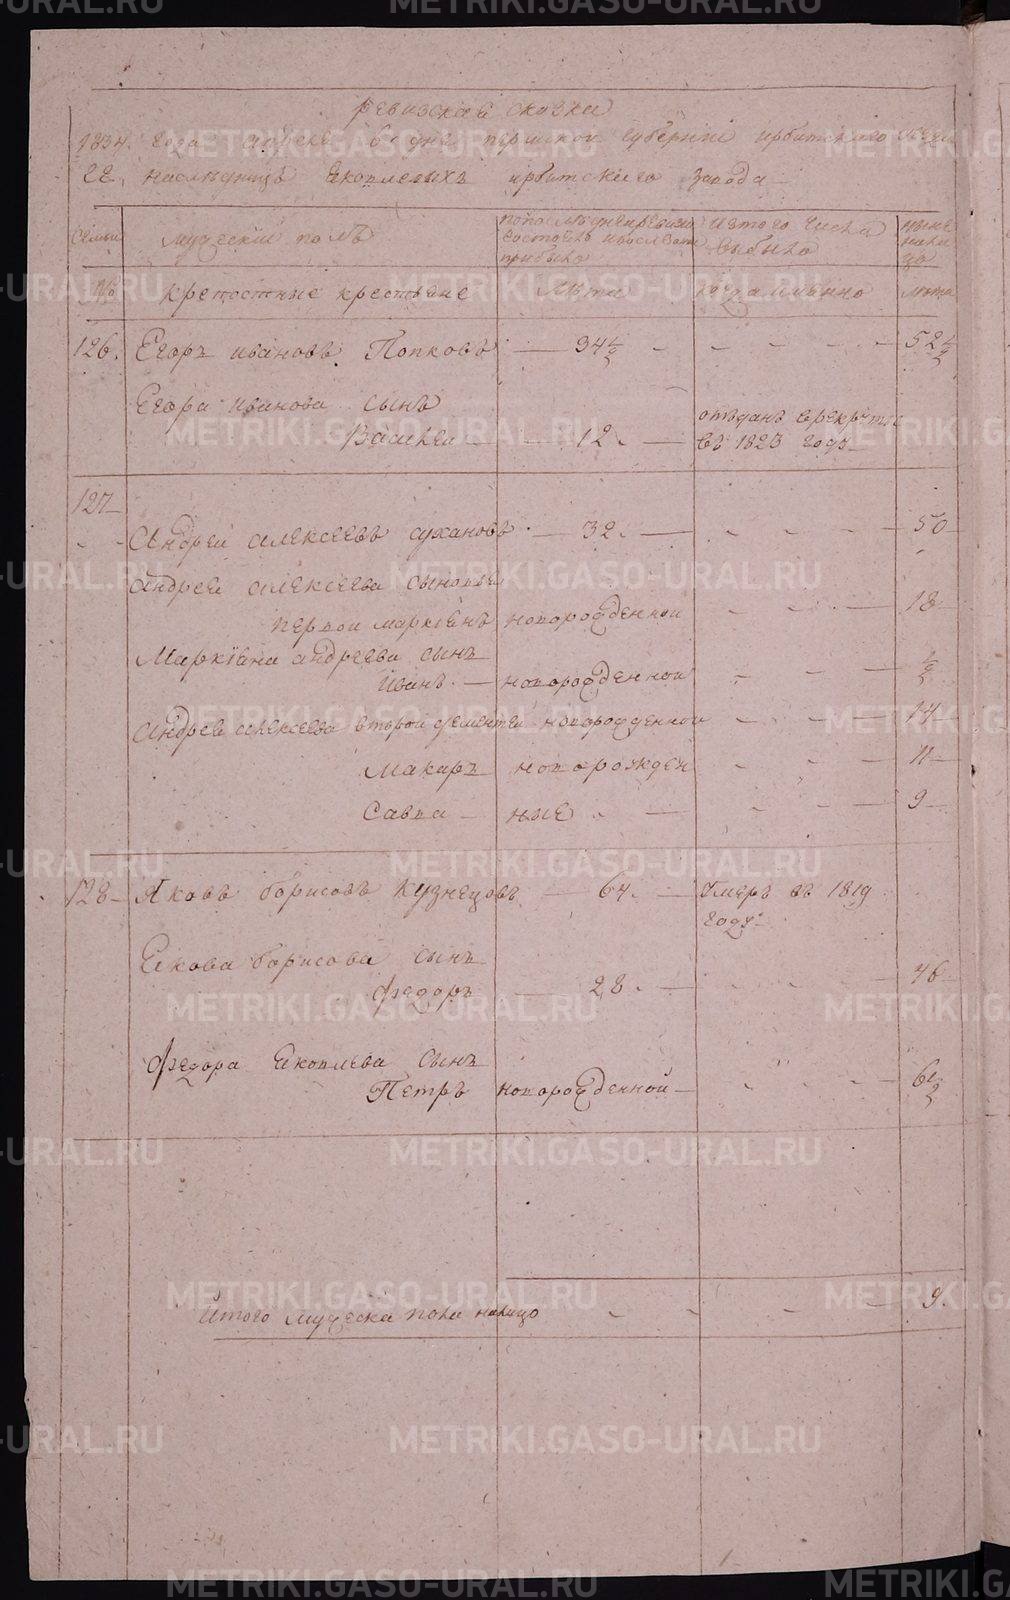 Ревизская сказка
1834. года апреля 6 дня пермской губернiи ирбитского уезда
ее, наследницъ Яковлевыхъ ирбитского завода
Семьи
мужескiй полъ
по последней ревизiи состояло и после того прибыло
Изъ того числа выбыло
ныне на лицо
№
крепостные крестьяне
Лета
когда имянно
лета
126. Егоръ ивановъ Попковъ — 34 1/2 - - - - - 52 1/2
Егора иванова сынъ
Василей — 12. — отъданъ в рекруты
въ 1823 годе
127
Андрей алексеевъ сухановъ — 32. — - - - 50
андрея алексеева сыновья
первой маркiянъ новорожденной - - - 18
Маркiяна андреева сынъ
Иванъ. — новорожденной - - — 1/2
андрея алексеева второй дементей новорожденной - - - 14
Макаръ новорожден - - - 11
Савва — ные - — - - - 9
128 Яковъ борисовъ кузнецовъ — 64. — Умеръ въ 1819
годе
Якова борисова сынъ
федоръ — 28. — - - - 46
федора Яковлева сынъ
Петръ новорожденной — - - - - 6 1/2
Итого мужеска пола налицо - - - - 9.
METRIKI.GASO-URAL.RU